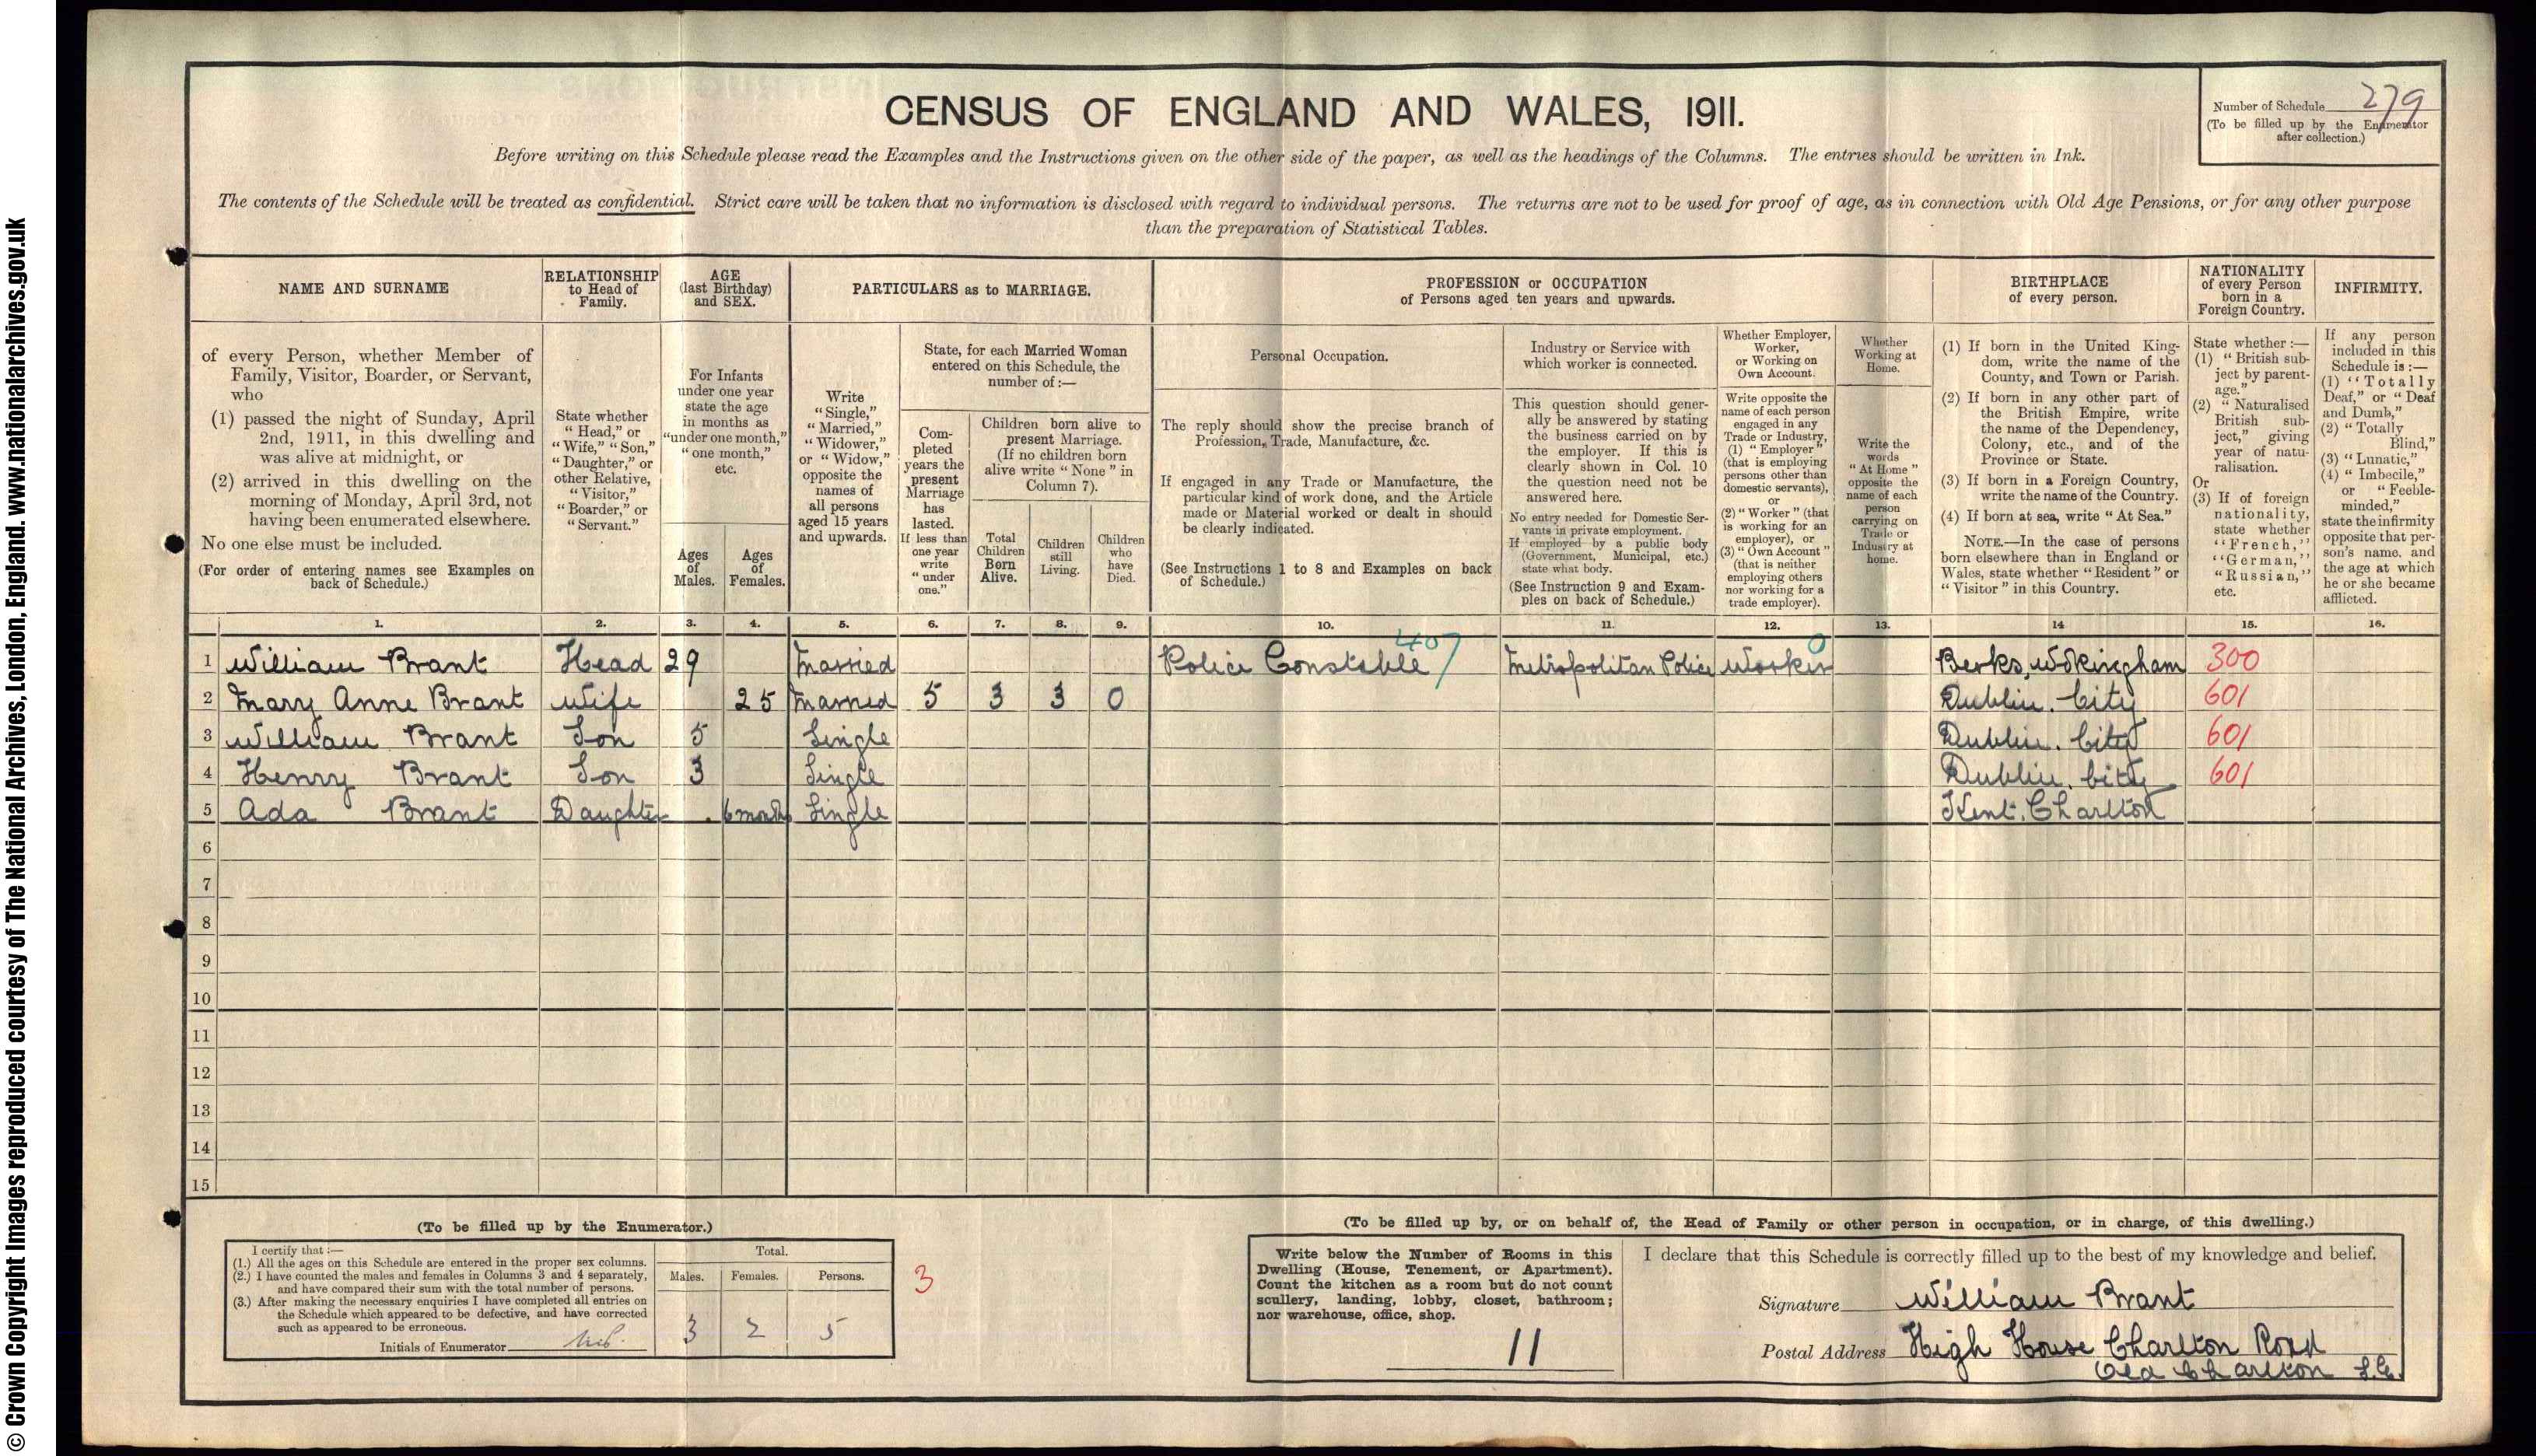 © Crown Copyright Images reproduced courtesy of The National Archives, London, England. www.nationalarchives.gov.uk
CENSUS OF ENGLAND AND WALES, 1911.
Number of Schedule 279
(To be filled up by the Enumerator
after collection.)
Before writing on this Schedule please read the Examples and the Instructions given on the other side of the paper, as well as the headings of the Columns. The entries should be written in Ink.
The contents of the Schedule will be treated as confidential. Strict care will be taken that no information is disclosed with regard to individual persons. The returns are not to be used for proof of age, as in connection with Old Age Pensions, or for any other purpose
than the preparation of Statistical Tables.
NAME AND SURNAME
of every Person, whether Member of
Family, Visitor, Boarder, or Servant,
who
(1) passed the night of Sunday, April
2nd, 1911, in this dwelling and
was alive at midnight, or
(2) arrived in this dwelling on the
morning of Monday, April 3rd, not
having been enumerated elsewhere.
No one else must be included.
(For order of entering names see Examples on
back of Schedule.)
RELATIONSHIP
to Head of
Family.
State whether
"Head," or
"Wife," "Son,"
"Daughter," or
other Relative,
"Visitor,"
"Boarder," or
"Servant."
AGE
(last Birthday)
and SEX.
For Infants
under one year
state the age
in months as
"under one month,"
"one month,"
etc.
Ages
of
Males.
Ages
of
Females.
PARTICULARS as to MARRIAGE.
Write
"Single,"
"Married,"
"Widower,"
or "Widow,"
opposite the
names of
all persons
aged 15 years
and upwards.
State, for each Married Woman
entered on this Schedule, the
number of :—
Com-
pleted
years the
present
Marriage
has
lasted.
If less than
one year
write
"under
one."
Children born alive to
present Marriage.
(If no children born
alive write "None" in
Column 7).
Total
Children
Born
Alive.
Children
still
Living.
Children
who
have
Died.
PROFESSION or OCCUPATION
of Persons aged ten years and upwards.
Personal Occupation.
The reply should show the precise branch of
Profession, Trade, Manufacture, &c.
If engaged in any Trade or Manufacture, the
particular kind of work done, and the Article
made or Material worked or dealt in should
be clearly indicated.
(See Instructions 1 to 8 and Examples on back
of Schedule.)
Industry or Service with
which worker is connected.
This question should gener-
ally be answered by stating
the business carried on by
the employer. If this is
clearly shown in Col. 10
the question need not be
answered here.
No entry needed for Domestic Ser-
vants in private employment.
If employed by a public body
(Government, Municipal, etc.)
state what body.
(See Instruction 9 and Exam-
ples on back of Schedule.)
Whether Employer,
Worker,
or Working on
Own Account.
Write opposite the
name of each person
engaged in any
Trade or Industry,
(1) "Employer"
(that is employing
persons other than
domestic servants),
or
(2) "Worker" (that
is working for an
employer), or
(3) "Own Account"
(that is neither
employing others
nor working for a
trade employer).
Whether
Working at
Home.
Write the
words
"At Home"
opposite the
name of each
person
carrying on
Trade or
Industry at
home.
BIRTHPLACE
of every person.
(1) If born in the United King-
dom, write the name of the
County, and Town or Parish.
(2) If born in any other part of
the British Empire, write
the name of the Dependency,
Colony, etc., and of the
Province or State.
(3) If born in a Foreign Country,
write the name of the Country.
(4) If born at sea, write "At Sea."
NOTE.—In the case of persons
born elsewhere than in England or
Wales, state whether "Resident" or
"Visitor" in this Country.
NATIONALITY
of every Person
born in a
Foreign Country.
State whether :—
(1) "British sub-
ject by parent-
age."
(2) "Naturalised
British sub-
ject," giving
year of natu-
ralisation.
Or
(3) If of foreign
nationality,
state whether
"French,"
"German,"
"Russian,"
etc.
INFIRMITY.
If any person
included in this
Schedule is :—
(1) "Totally
Deaf," or "Deaf
and Dumb,"
(2) "Totally
Blind,"
(3) "Lunatic,"
(4) "Imbecile,"
or "Feeble-
minded,"
state the infirmity
opposite that per-
son's name, and
the age at which
he or she became
afflicted.
1. 2. 3. 4. 5. 6. 7. 8. 9. 10. 11. 12. 13. 14 15. 16.
407 0
1 William Brant Head 29 Married Police Constable Metropolitan Police Worker Berks, Wokingham 300
2 Mary Anne Brant Wife 25 Married 5 3 3 0 Dublin. City 601
3 William Brant Son 5 Single Dublin. City 601
4 Henry Brant Son 3 Single Dublin. City 601
5 Ada Brant Daughter 6 months Single Kent. Charlton
6
7
8
9
10
11
12
13
14
15
(To be filled up by the Enumerator.)
I certify that :—
(1.) All the ages on this Schedule are entered in the proper sex columns.
(2.) I have counted the males and females in Columns 3 and 4 separately,
and have compared their sum with the total number of persons.
(3.) After making the necessary enquiries I have completed all entries on
the Schedule which appeared to be defective, and have corrected
such as appeared to be erroneous.
Initials of Enumerator
Total.
Males. Females. Persons.
3 2 5
3
(To be filled up by, or on behalf of, the Head of Family or other person in occupation, or in charge, of this dwelling.)
Write below the Number of Rooms in this
Dwelling (House, Tenement, or Apartment).
Count the kitchen as a room but do not count
scullery, landing, lobby, closet, bathroom;
nor warehouse, office, shop.
11
I declare that this Schedule is correctly filled up to the best of my knowledge and belief.
Signature William Brant
Postal Address High House Charlton Road
Old Charlton S.E.